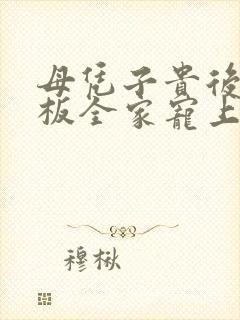 母凭子貴後
板全家寵上
穆楸